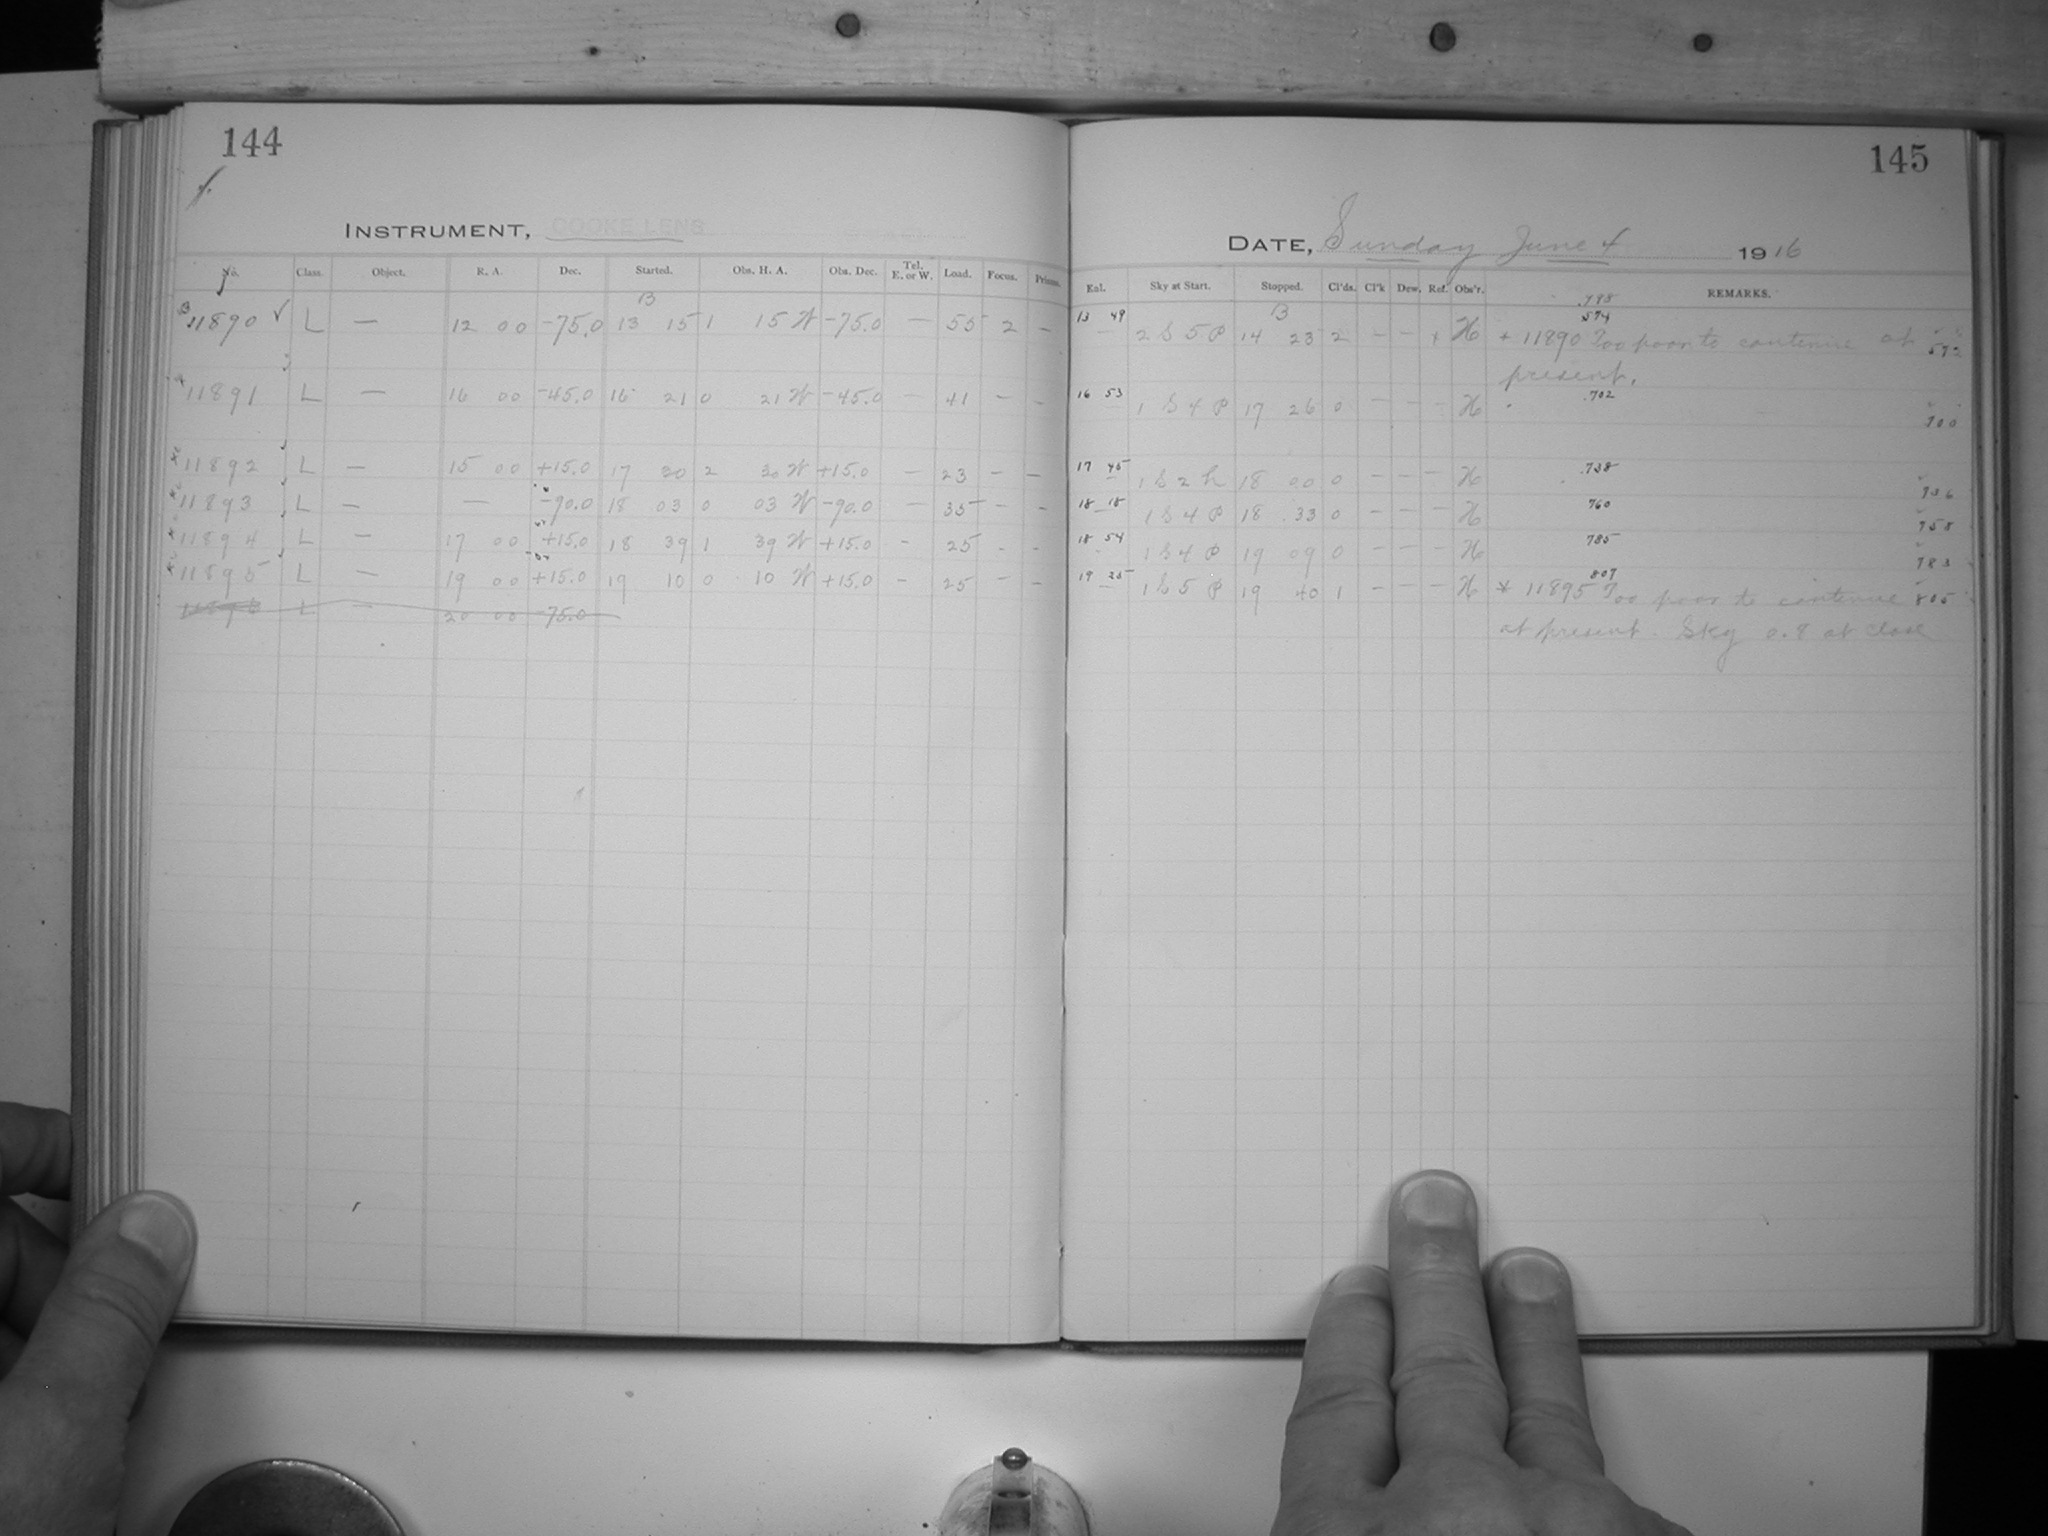 144
INSTRUMENT, COOKE LENS
No. Class. Object. R. A. Dec. Started. Obs. H. A. Obs. Dec. Tel. E. or W. Load. Focus. Prisms.
B
11890 ✓ L — 12 00 -75.0 13 15 1 15 W -75.0 — 55 2 —
11891 L — 16 00 -45.0 16 21 0 21 W -45.0 — 41 — —
11892 L — 15 00 +15.0 17 30 2 30 W +15.0 — 23 — —
11893 L — — -90.0 18 03 0 03 W -90.0 — 35 — —
11894 L — 17 00 +15.0 18 39 1 39 W +15.0 - 25 - -
11895 L — 19 00 +15.0 19 10 0 10 W +15.0 - 25 - -
11896 L — 20 00 -75.0
145
DATE, Sunday June 4 1916
Eal. Sky at Start. Stopped. Cl'ds. Cl'k Dew. Ref. Obs'r. REMARKS.
B
574
13 49 2 S 5 P 14 23 2 — — + H + 11890 Too poor to continue at 572
present.
.702
16 53 1 S 4 P 17 26 0 — — — H 700
17 45 1 S 2 h 18 00 0 — — — H .738 736
18 18 1 S 4 P 18 33 0 — — — H 760 758
18 54 1 S 4 P 19 09 0 — — — H 785 783
807
19 25 1 S 5 P 19 40 1 — — — H * 11895 Too poor to continue 805
at present. Sky 0.8 at close